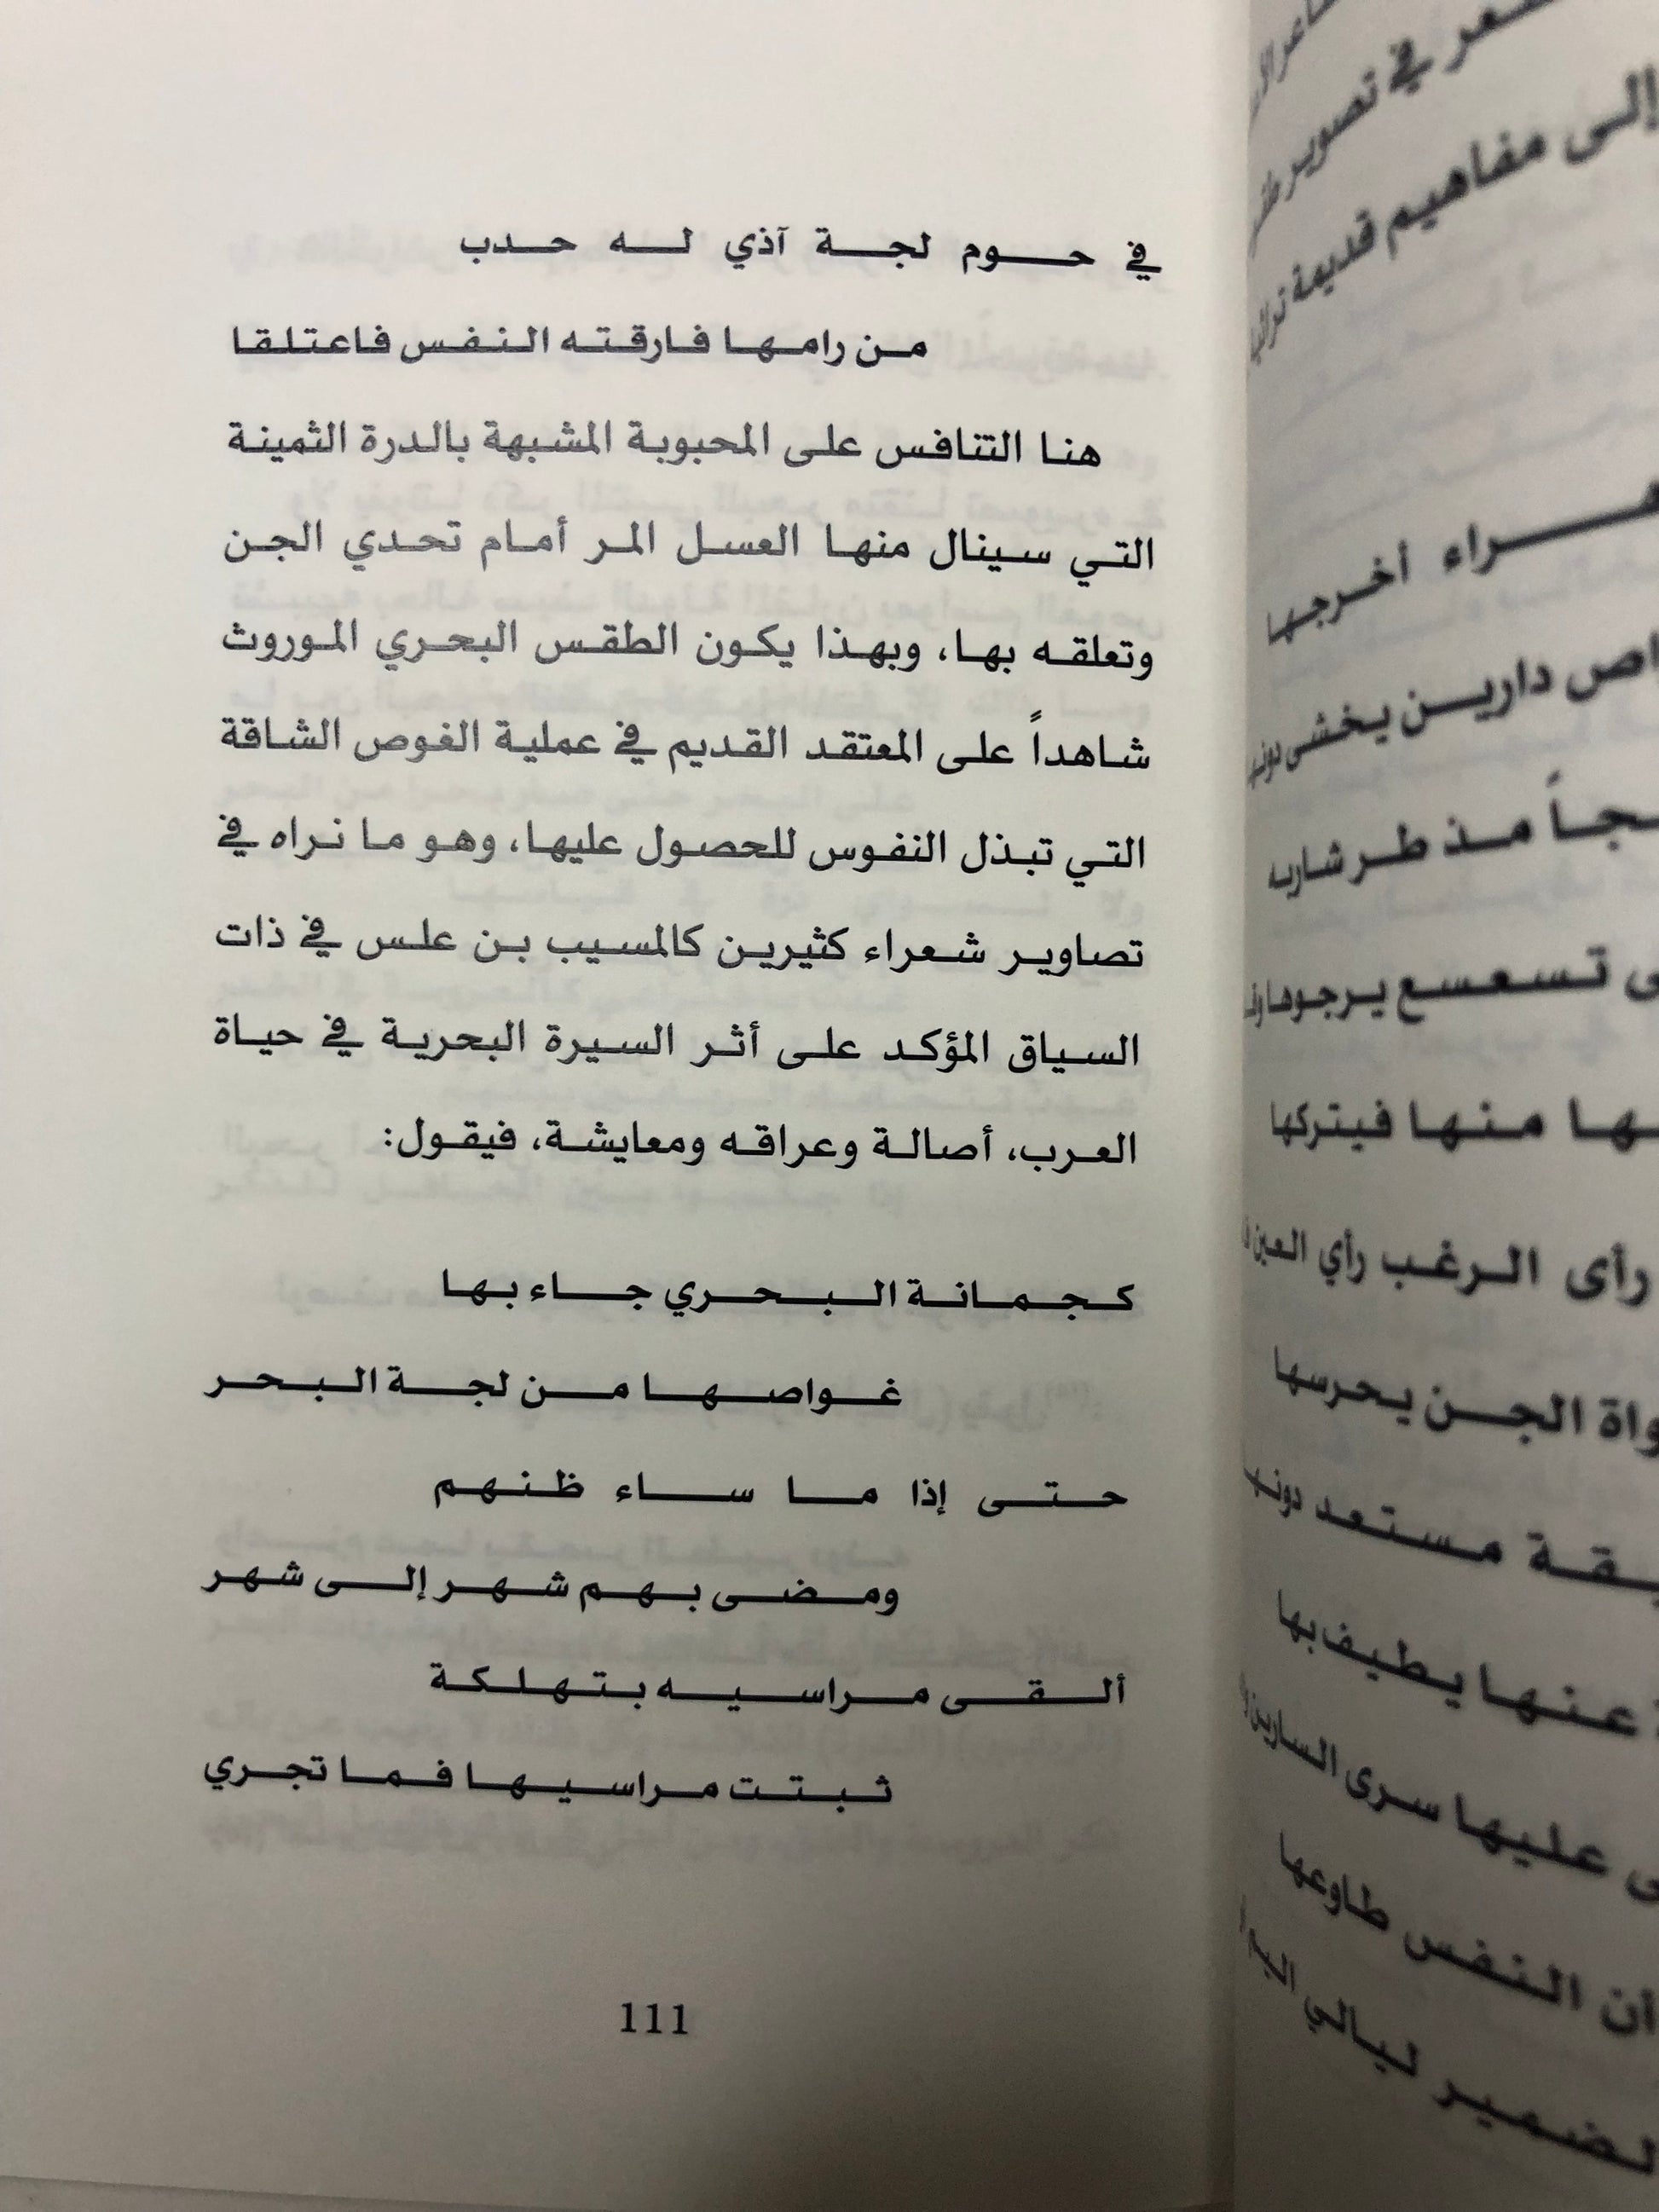 في حوم لجة آذي له حدب
من رامها فارقته النفس فاعتلقا
هنا التنافس على المحبوبة المشبهة بالدرة الثمينة
التي سينال منها العسل المر أمام تحدي الجن
وتعلقه بها، وبهذا يكون الطقس البحري الموروث
شاهداً على المعتقد القديم في عملية الغوص الشاقة
التي تبذل النفوس للحصول عليها، وهو ما نراه في
تصاوير شعراء كثيرين كالمسيب بن علس في ذات
السياق المؤكد على أثر السيرة البحرية في حياة
العرب، أصالة وعراقه ومعايشة، فيقول:
كجمانة البحري جاء بها
غواصها من لجة البحر
حتى إذا ما ساء ظنهم
ومضى بهم شهر إلى شهر
ألقى مراسيه بتهلكة
ثبتت مراسيها فما تجري
111
في تصوير
إلى مفاهيم قديمة
أخرجها
دارين يخشى
مذ طر شاربه
تسعسع يرجوها
منها فيتركها
رأى الرغب رأي العين
الجن يحرسها
مستعد دونها
عنها يطيف بها
عليها سرى السارين
أن النفس طاوعها
ليالي